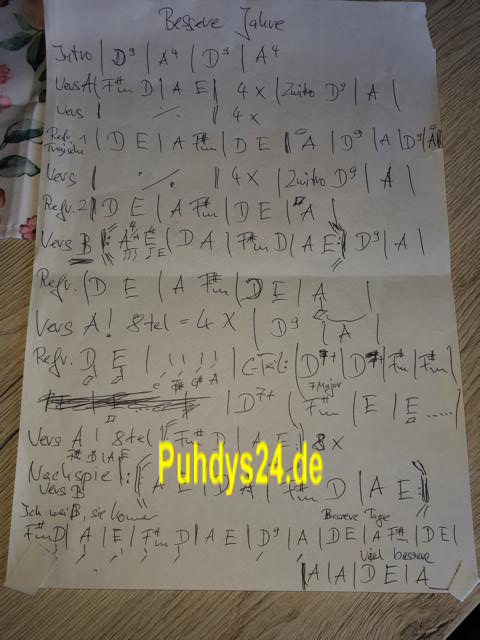 Bessere Jahre
Intro | D⁹ | A⁴ | D⁹ | A⁴
Vers A | F#m D | A E | 4 x | 2 Intro D⁹ | A |
Vers | ·/. | 4 x
Refr. 1 | D E | A F#m | D E | A | D⁹ | A | D⁹ | A |
Vers | ·/. | 4 x | 2 Intro D⁹ | A |
Refr. 2 | D E | A F#m | D E | A |
Vers B |: A E | D A | F#m D | A E :| D⁹ | A |
Refr. | D E | A F#m | D E | A |
Vers A! 8tel = 4 x | D⁹ | A |
Refr. D E | ! ! ! ! | D7+ | D7+ | F#m | F#m |
E F#m G# A
| D7+ | F#m | E | E .....
7 Major
Vers A! 8tel | F#m D | A E | 8 x
F# D | A E
Nachspiel |: A E | D A | F#m D | A E :|
Vers B
Puhdys24.de
Ich weiß, sie Bessere Tage
F#m D | A | E | F#m D | A E | D⁹ | A | D E | A F#m | D E |
viel bessere
| A | A | D E | A